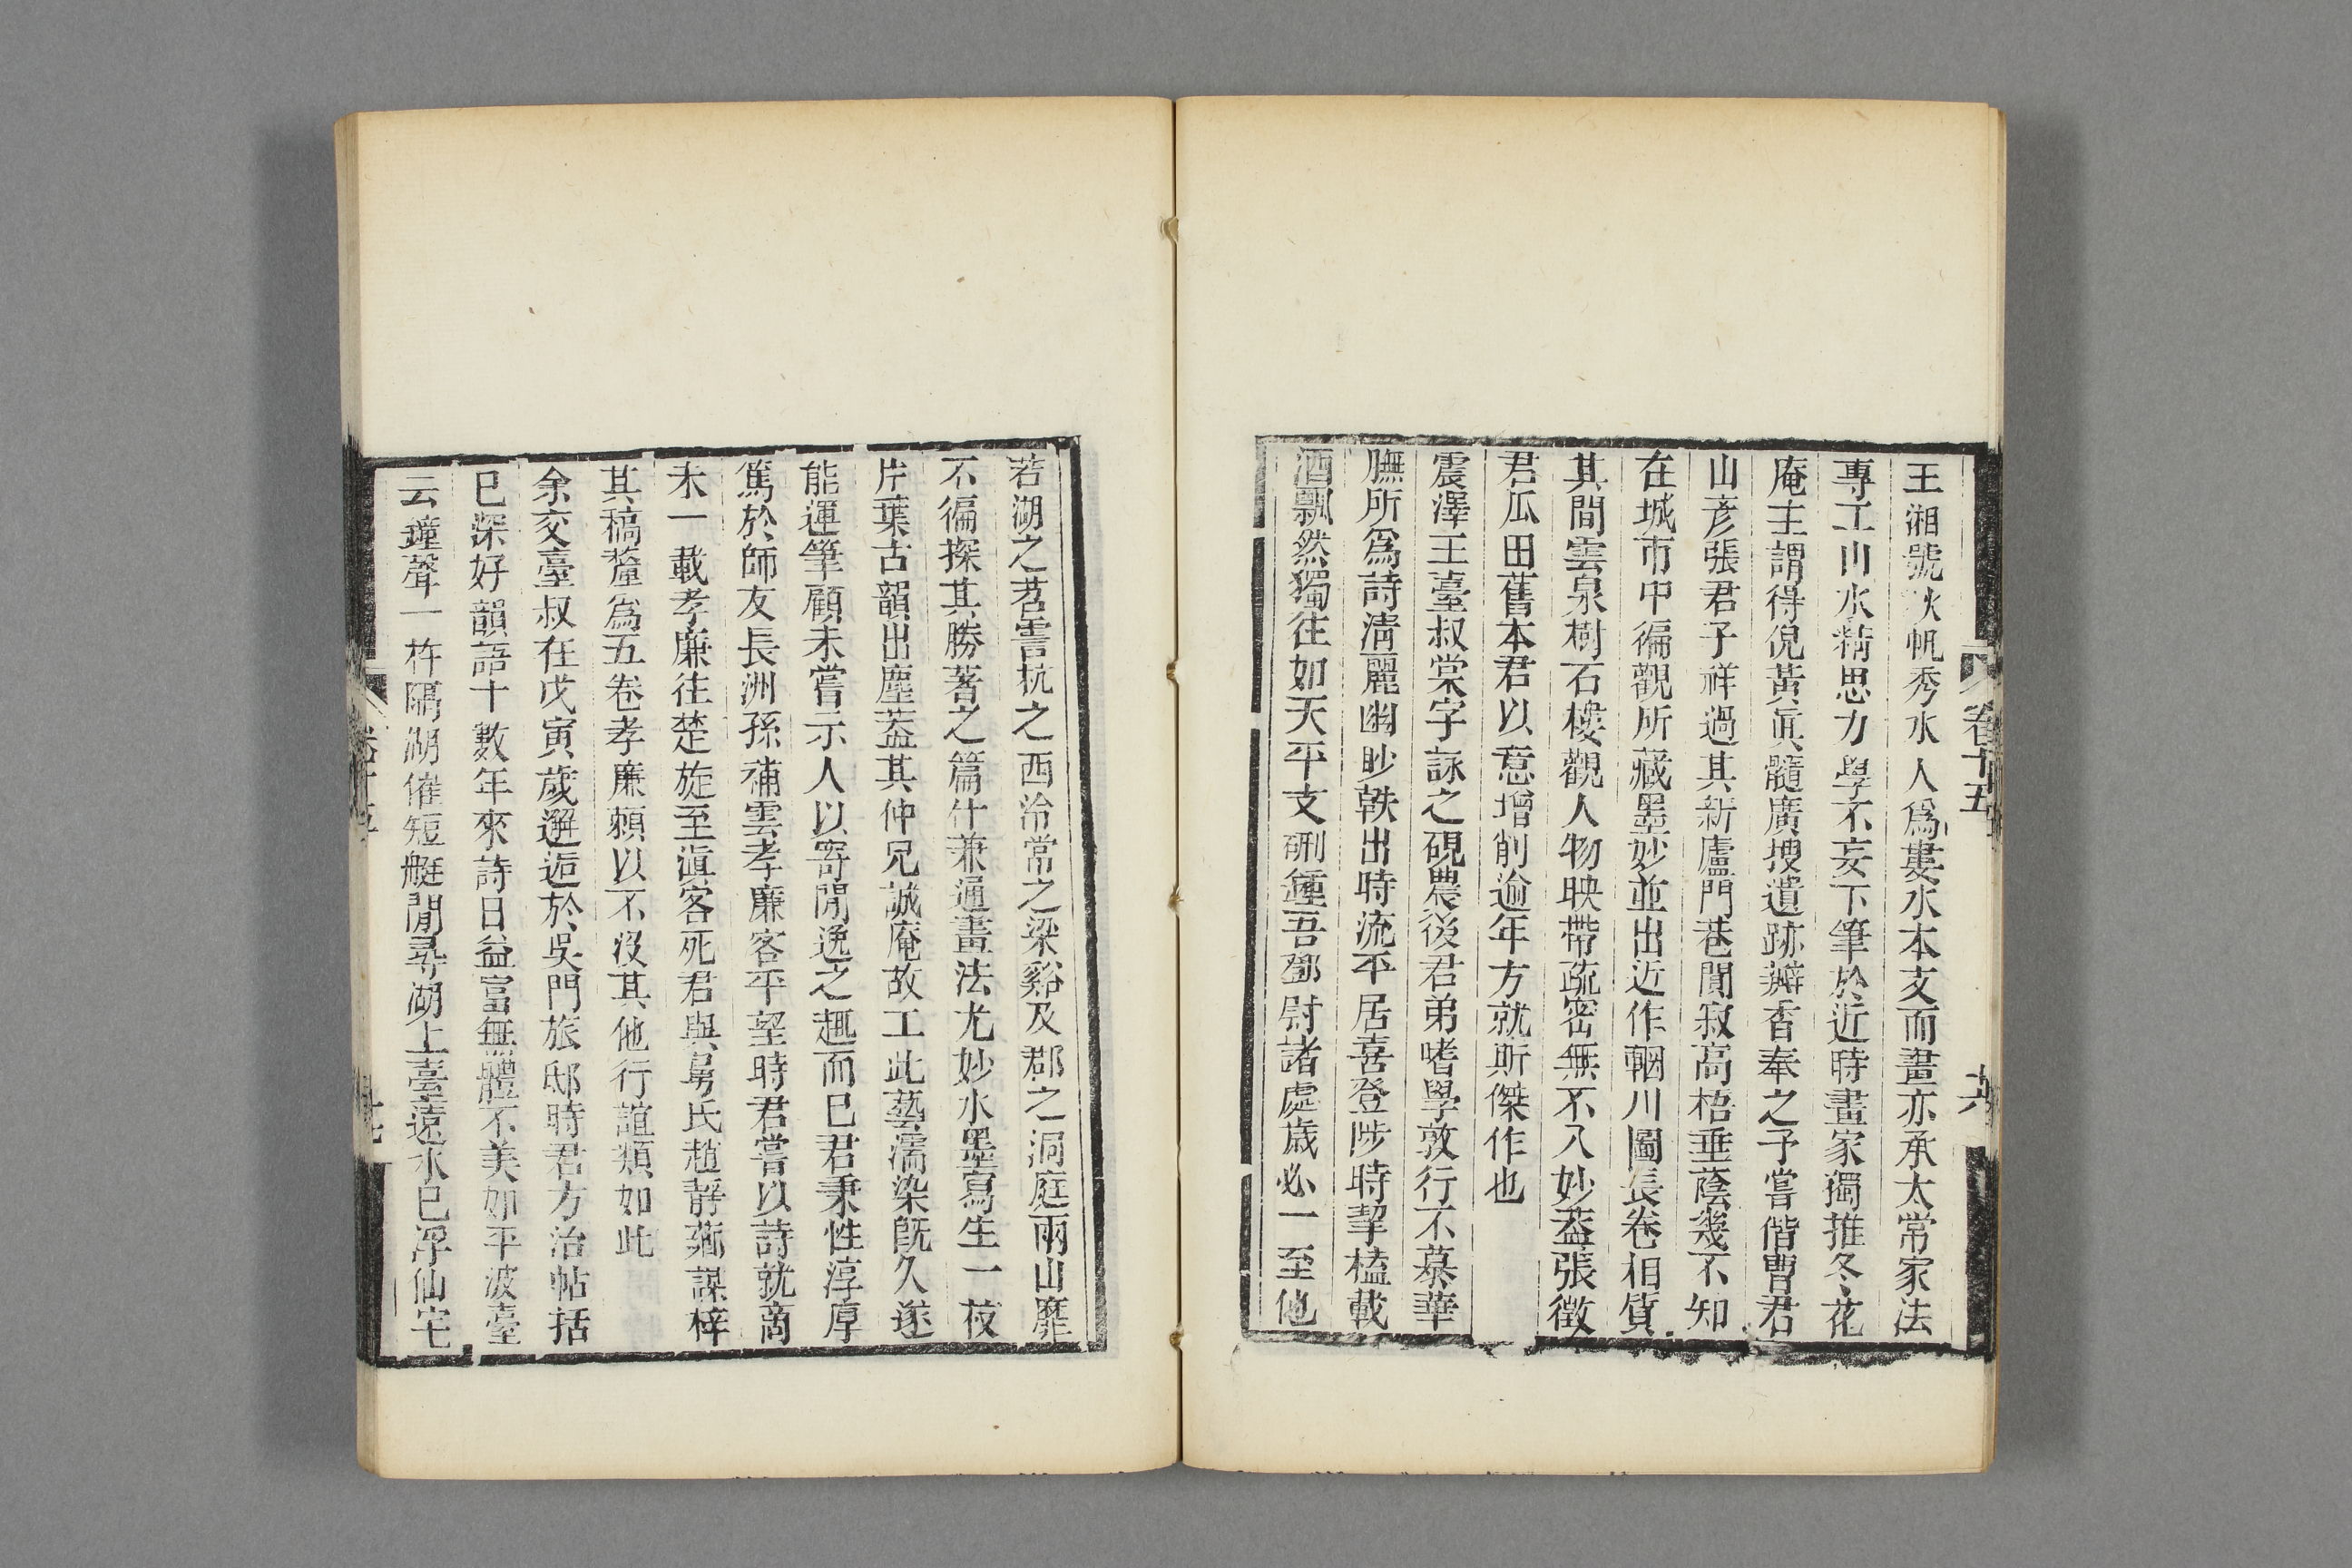 王湘號秋帆秀水人爲婁水本支而畫亦承太常家法
專工山水精思力學不妄下筆於近時畫家獨推冬花
庵主謂得倪黃眞髓廣搜遺跡瓣香奉之予嘗偕曹君
山彥張君子祥過其新廬門巷閒寂高梧垂蔭幾不知
在城市中徧觀所藏墨妙並出近作輞川圖長卷相質
其間雲泉樹石樓觀人物映帶疏密無不入妙葢張徵
君瓜田舊本君以意增削逾年方就斯傑作也
震澤王臺叔棠字詠之硯農後君弟嗜學敦行不慕華
膴所爲詩清麗幽眇軼出時流平居喜登陟時挈榼載
酒飄然獨往如天平支硎鍾吾鄧尉諸處歲必一至他
若湖之苕霅杭之西冶常之梁谿及郡之洞庭兩山靡
不徧探其勝著之篇什兼通畫法尤妙水墨寫生一枝
片葉古韻出塵葢其仲兄誠庵故工此藝濡染旣久遂
能運筆顧未嘗示人以寄閒逸之趣而已君秉性淳厚
篤於師友長洲孫補雲孝廉客平望時君嘗以詩就商
未一載孝廉往楚旋至滇客死君與舅氏趙靜薌謀梓
其稿釐爲五卷孝廉賴以不沒其他行誼類如此
余交臺叔在戊寅歲邂逅於吳門旅邸時君方治帖括
已深好韻語十數年來詩日益富無體不美如平波臺
云鐘聲一杵隔湖催短艇閒尋湖上臺遠水已浮仙宅
卷十五
六
卷十五
七